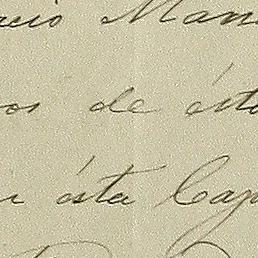 acio Man
os de ésta
ésta Cap